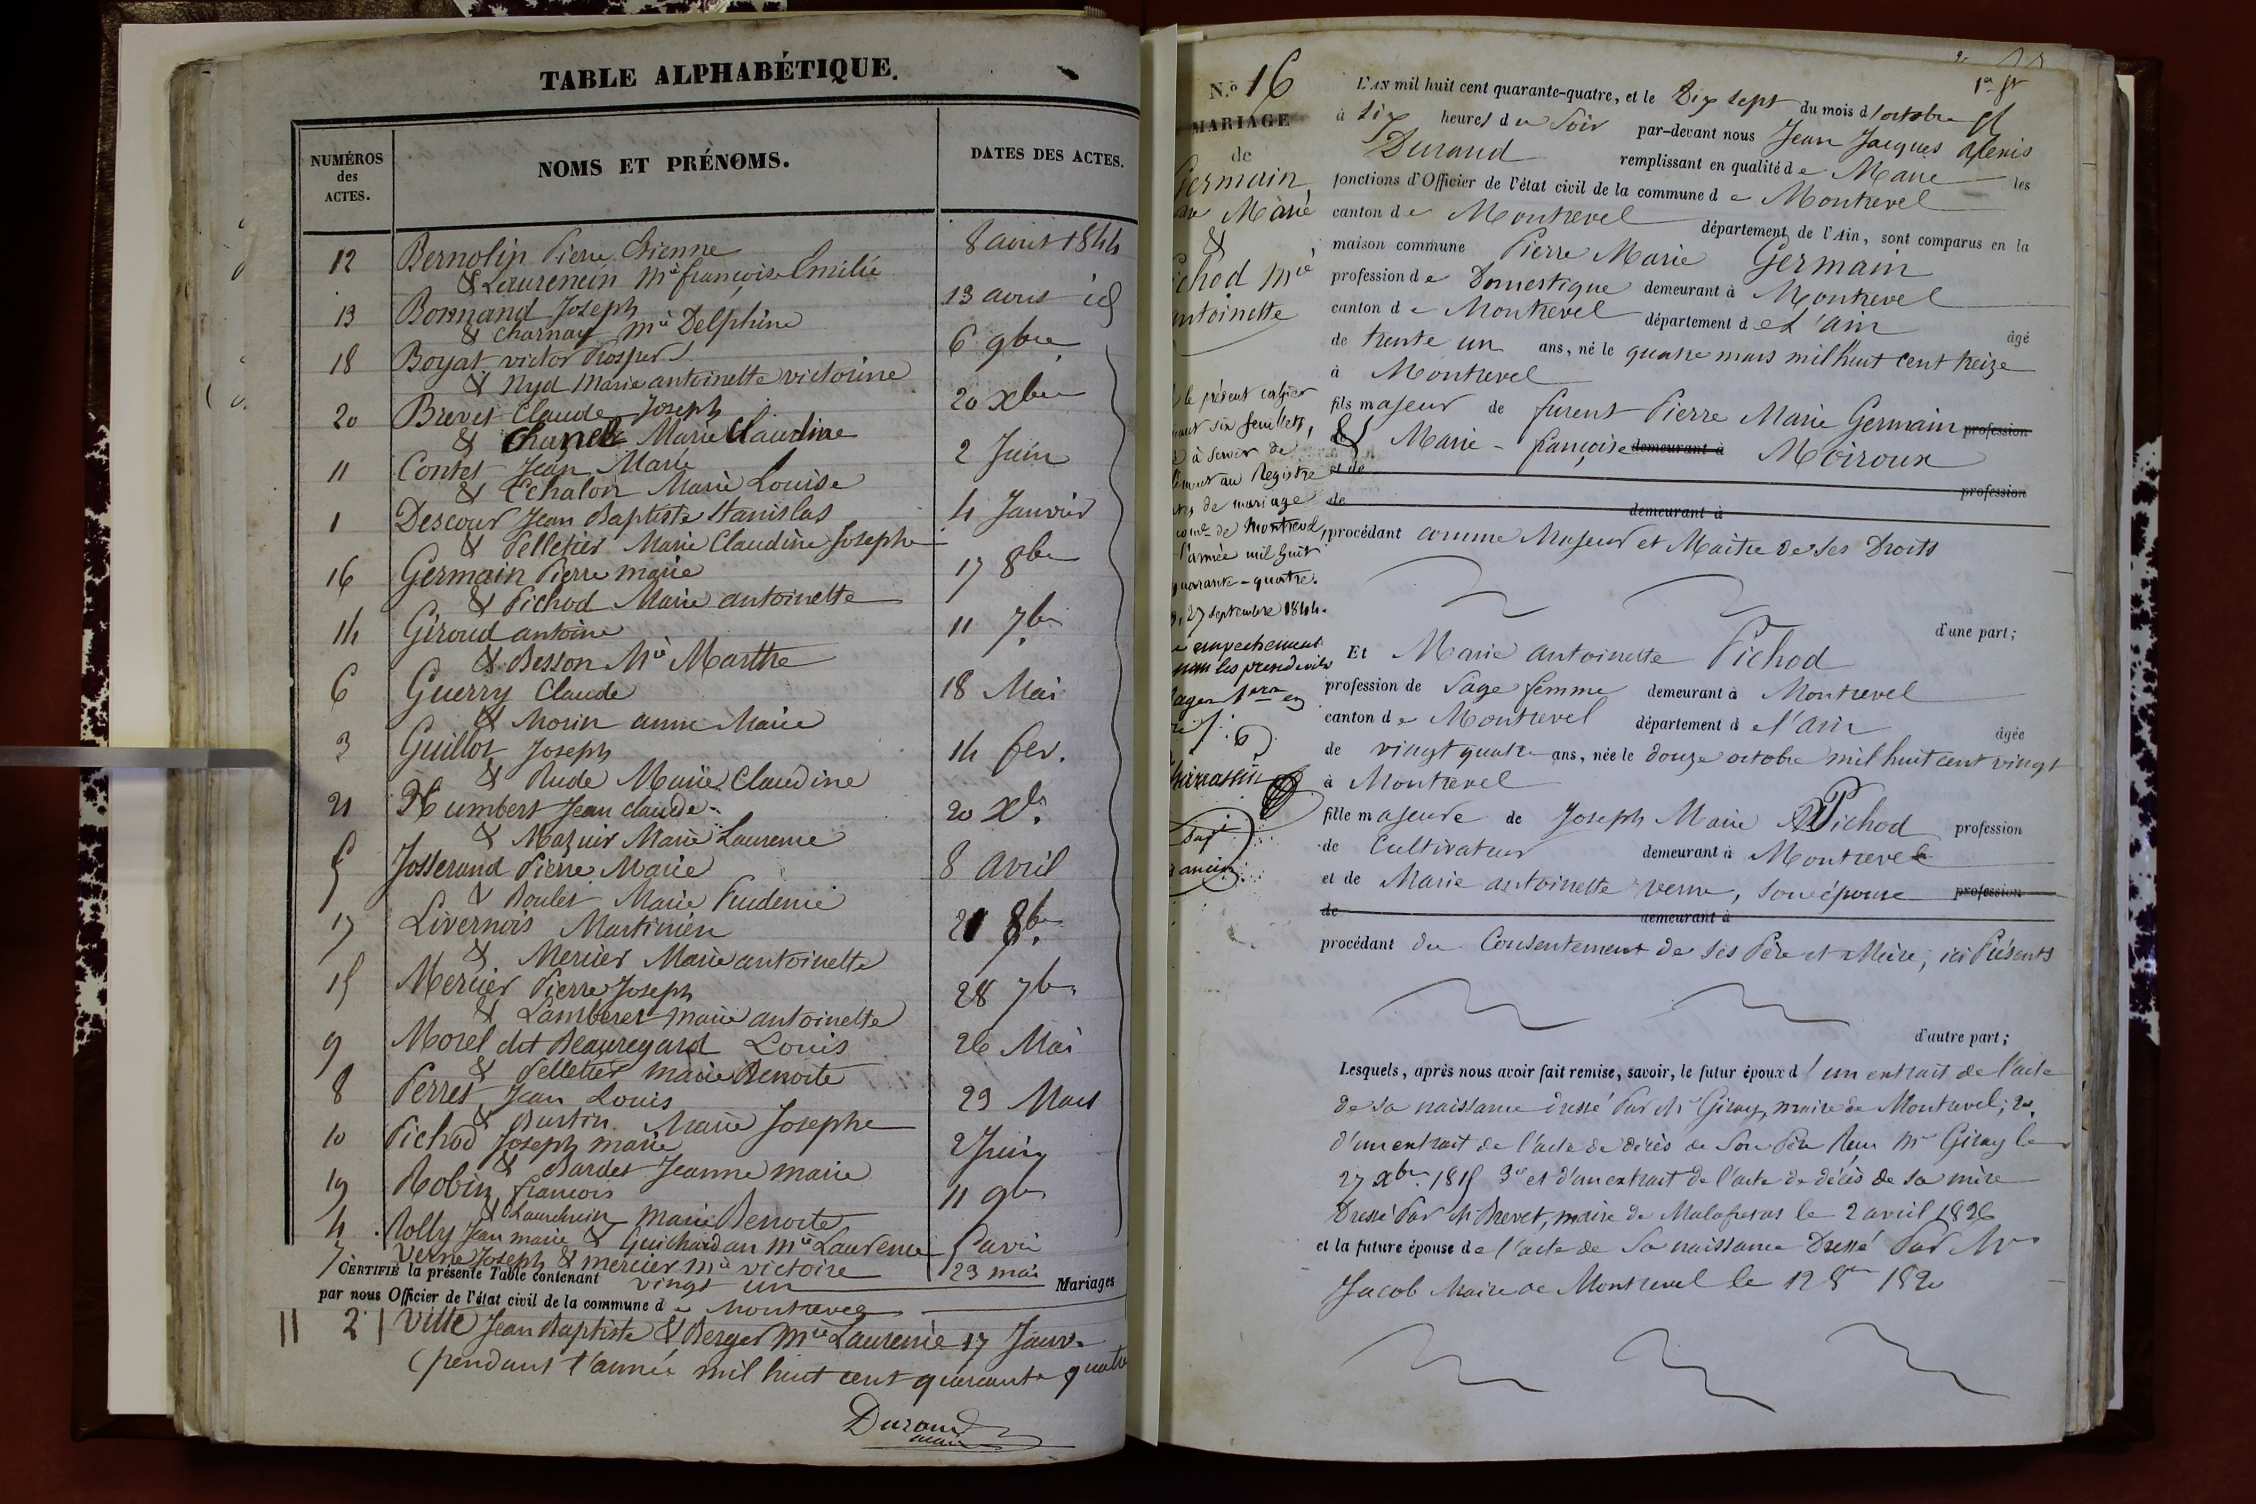 TABLE ALPHABÉTIQUE.
NUMÉROS des ACTES.
NOMS ET PRÉNOMS.
DATES DES ACTES.
12 Bernolin Pierre Etienne 8 aout 1844
& Laurencin Mie françoise Emilie
13 Bonnand Joseph 13 aout id
& Charnay Mie Delphine
18 Boyat victor Prosper 6 9bre
& Nyd Marie antoinette victorine
20 Brevet Claude Joseph 20 Xbre
& Chanel Marie Claudine
11 Contet Jean Marie 2 Juin
& Echalon Marie Louise
1 Descour Jean Baptiste Stanislas 4 Janvier
& Pelletier Marie Claudine Josephe
16 Germain Pierre marie 17 8bre
& Pichod Marie antoinette
14 Giroud antoine 11 7bre
& Besson Mie Marthe
6 Guerry Claude 18 Mai
& Morin anne Marie
3 Guillot Joseph 14 fev.
& Rude Marie Claudine
21 Humbert Jean claude 20 Xbre
& Mazuir Marie Laurence
5 Josserand Pierre Marie 8 avril
& Boulet Marie Prudence
17 Livernois Martinien 21 8bre
& Mercier Marie antoinette
15 Mercier Pierre Joseph 28 7bre
& Lamberet marie antoinette
9 Morel dit Beauregard Louis 26 Mai
& Pelletier marie Benoite
8 Perret Jean Louis 23 Mai
& Burtin Marie Josephe
10 Pichod Joseph marie 2 Juin
& Bardet Jeanne marie
19 Robin françois 11 9bre
& Laurencin Marie Benoite
4 Rolly Jean marie & Guichardan Mie Laurence 5 avril
7 Verne Joseph & mercier mie victoire 23 mai
CERTIFIÉ la présente Table contenant vingt un Mariages
par nous Officier de l'état civil de la commune de Montrevel
2 Vitte Jean Baptiste & Berger Mie Laurence 17 Janv.
(pendant l'année mil huit cent quarante quatre
Durand
maire
N.º 16
MARIAGE
de
Germain,
Marie
&
Pichod Mie
antoinette
le présent cahier
six feuillets,
à servir de
au Registre
de mariage
de Montrevel,
l'année mil huit
quarante-quatre.
27 septembre 1844.
empechement
ancien
L'AN mil huit cent quarante-quatre, et le Dix sept du mois d'octobre
à six heures du Soir par-devant nous Jean Jacques Alexis
Durand remplissant en qualité de Maire les
fonctions d'Officier de l'état civil de la commune de Montrevel
canton de Montrevel département de l'Ain, sont comparus en la
maison commune Pierre Marie Germain
profession de Domestique demeurant à Montrevel
canton de Montrevel département de L'ain âgé
de trente un ans, né le quatre mars mil huit cent treize
à Montrevel
fils majeur de furent Pierre Marie Germain profession
& Marie-françoise demeurant à Moiroux
et de
profession
de demeurant à
procédant comme Majeur et Maitre de ses Droits
d'une part;
Et Marie antoinette Pichod
profession de Sage femme demeurant à Montrevel
canton de Montrevel département de l'ain âgée
de vingt quatre ans, née le douze octobre mil huit cent vingt
à Montrevel
fille majeure de Joseph Marie Pichod profession
de Cultivateur demeurant à Montrevel
et de Marie antoinette verne, son épouse profession
de demeurant à
procédant du Consentement de ses Père et Mère, ici Présents
d'autre part;
Lesquels, après nous avoir fait remise, savoir, le futur époux d'un extrait de l'acte
de sa naissance dressé Par Mr Giray, maire de Montrevel; 2º
d'un extrait de l'acte de décès de son Père Reçu Mr Giray le
27 Xbre 1815 3º et d'un extrait de l'acte de décès de sa mère
Dressé Par Mr Brevet, maire de Malafretas le 2 avril 1826
et la future épouse de l'acte de Sa naissance Dressé Par Mr
Jacob Maire de Montrevel le 12 8bre 1820